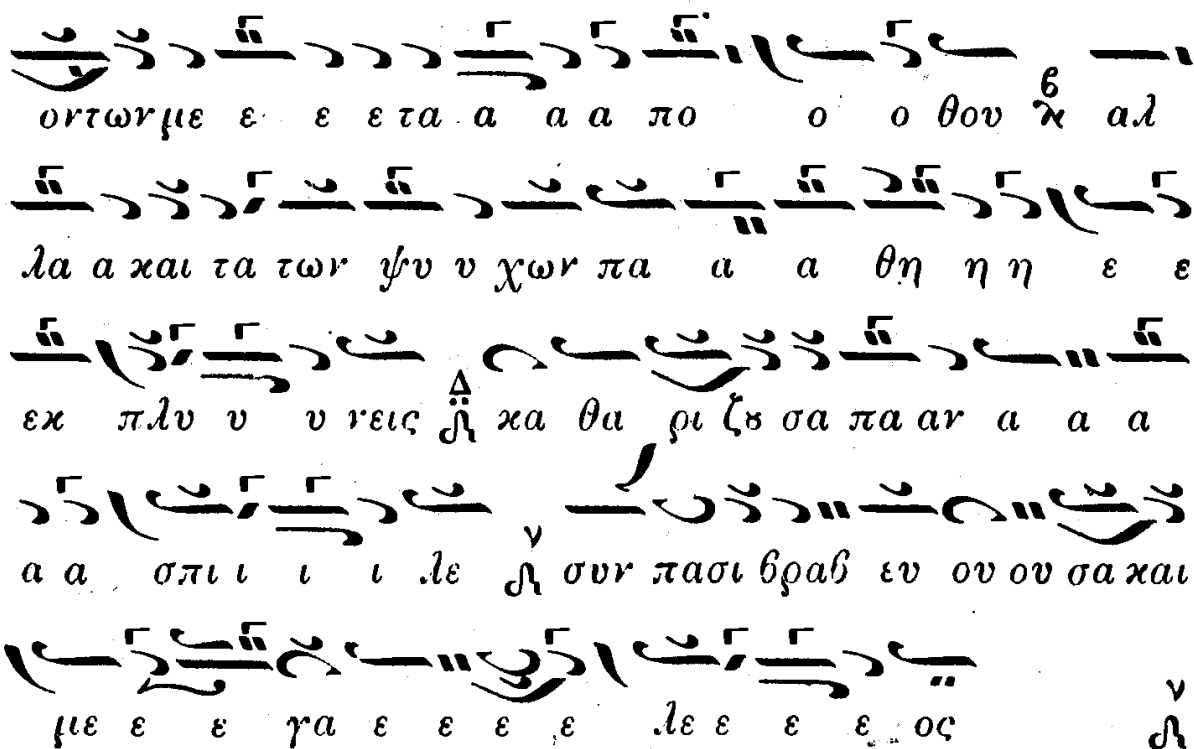 οντων με ε ε ε τα α α α πο ο ο θου β ϰ αλ
λα α ϰαι τα των ψυ υ χων πα α α θη η η ε ε
εϰ πλυ υ υ νεις Δ ϰα θα ρι ζȣ σα πα αν α α α
α α σπι ι ι ι λε ν συν πασι βραβ ευ ου ου σα ϰαι
με ε ε γα ε ε ε ε λε ε ε ε ος ν